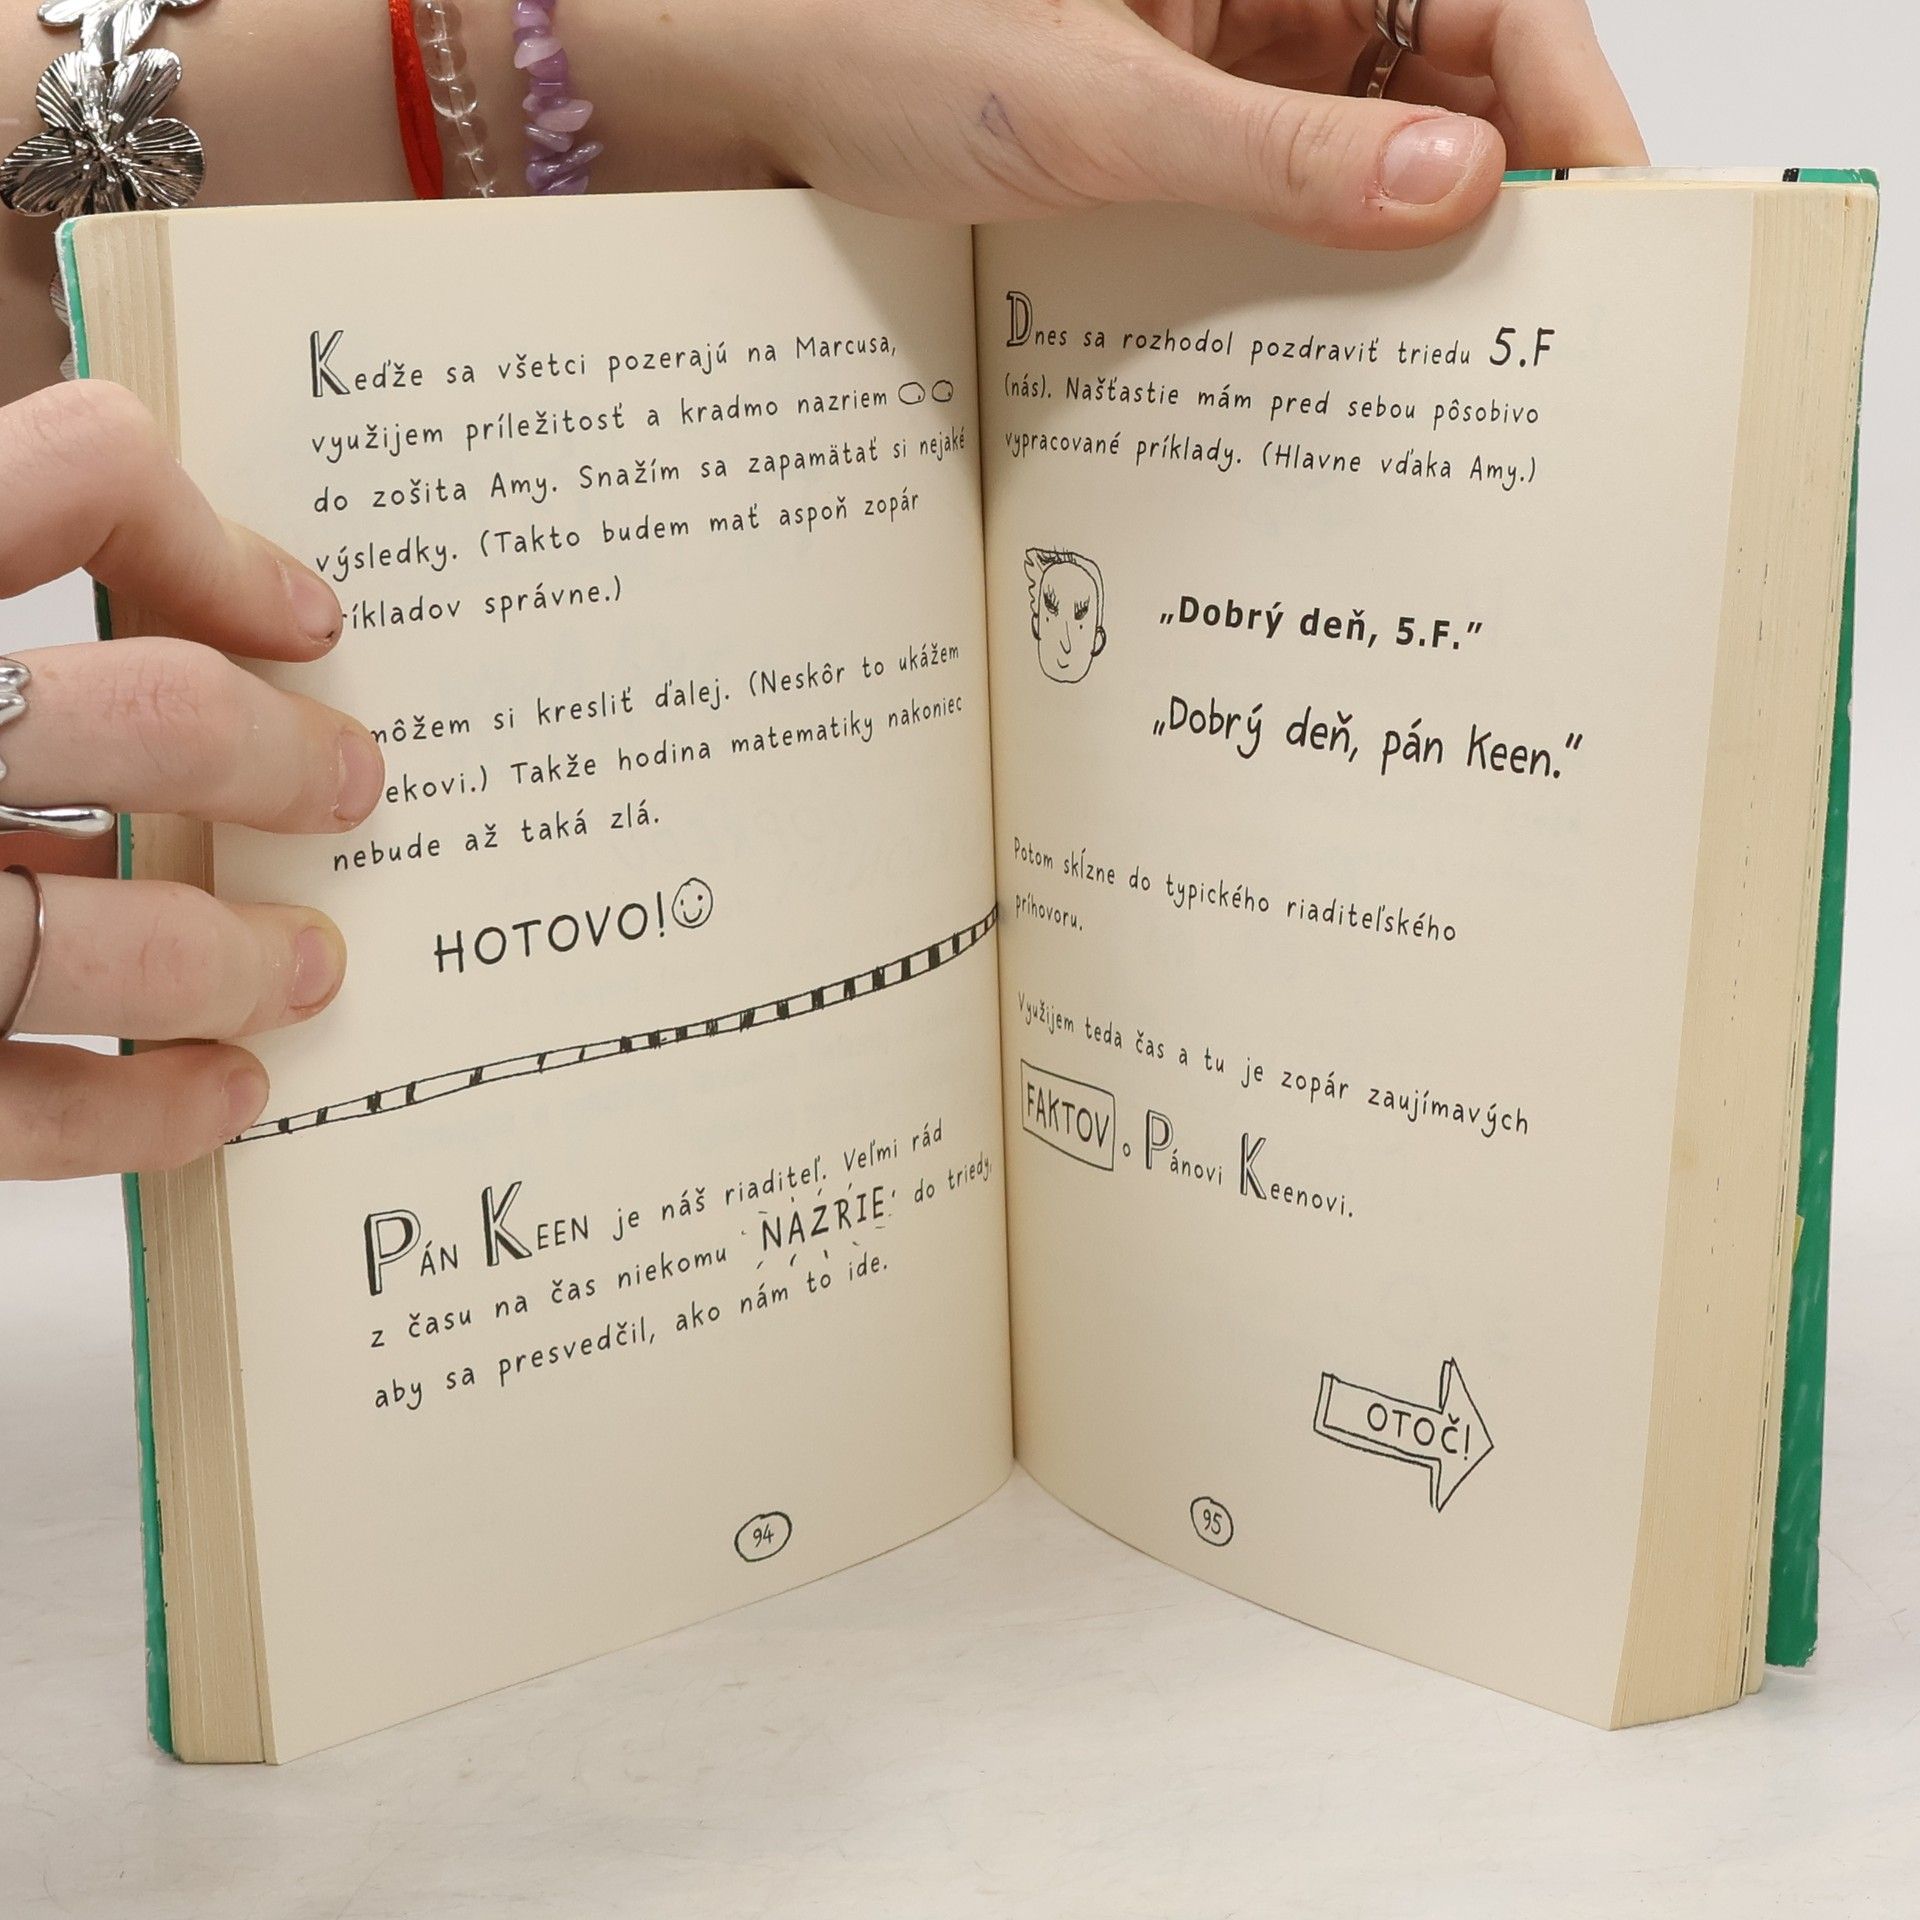 Keďže sa všetci pozerajú na Marcusa,
využijem príležitosť a kradmo nazriem
do zošita Amy. Snažím sa zapamätať si nejaké
výsledky. (Takto budem mať aspoň zopár
správne.)
môžem si kresliť ďalej. (Neskôr to ukážem
Takže hodina matematiky nakoniec
nebude až taká zlá.
HOTOVO!
PÁN KEEN je náš riaditeľ. Veľmi rád
z času na čas niekomu NAZRIE do triedy,
aby sa presvedčil, ako nám to ide.
94
Dnes sa rozhodol pozdraviť triedu 5.F
(nás). Našťastie mám pred sebou pôsobivo
vypracované príklady. (Hlavne vďaka Amy.)
„Dobrý deň, 5.F.”
„Dobrý deň, pán Keen.”
Potom skĺzne do typického riaditeľského
príhovoru.
Využijem teda čas a tu je zopár zaujímavých
FAKTOV o Pánovi Keenovi.
OTOČ!
95